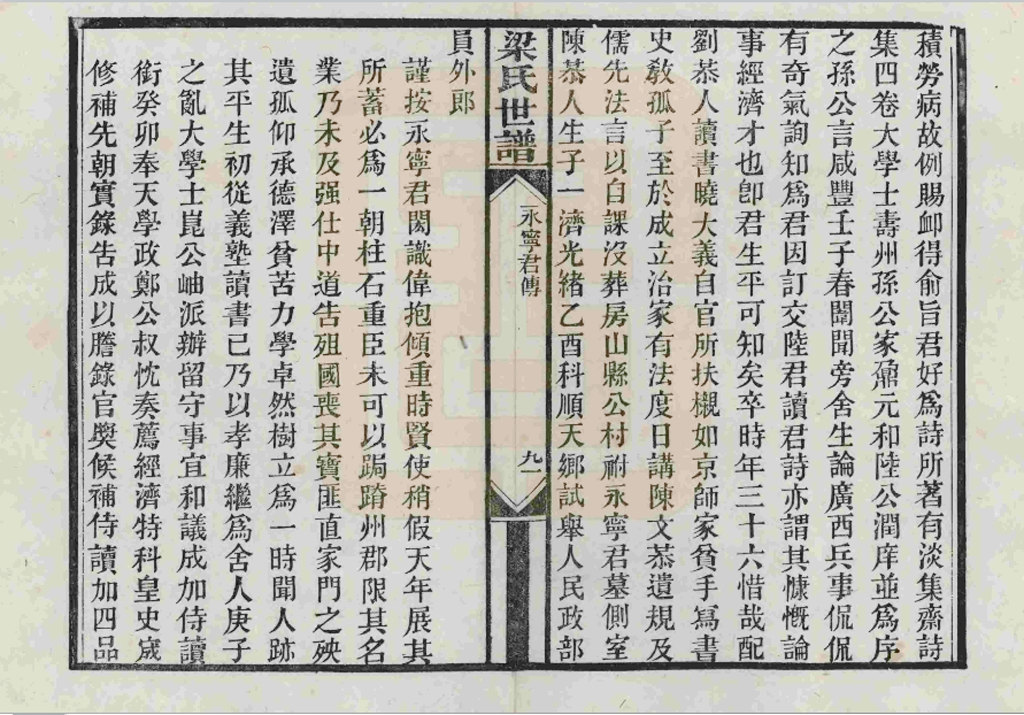 積勞病故例賜卹得俞旨君好爲詩所著有淡集齋詩
集四卷大學士壽州孫公家鼐元和陸公潤庠並爲序
之孫公言咸豐壬子春闈聞旁舍生論廣西兵事侃侃
有奇氣詢知爲君因訂交陸君讀君詩亦謂其慷慨論
事經濟才也卽君生平可知矣卒時年三十六惜哉配
劉恭人讀書曉大義自官所扶櫬如京師家貧手寫書
史敎孤子至於成立治家有法度日講陳文恭遺規及
儒先法言以自課沒葬房山縣公村祔永寧君墓側室
陳恭人生子一濟光緒乙酉科順天鄉試舉人民政部
梁氏世譜
永寧君傳
九一
員外郎
謹按永寧君閎識偉抱傾重時賢使稍假天年展其
所蓄必爲一朝柱石重臣未可以跼蹐州郡限其名
業乃未及强仕中道告殂國喪其寶匪直家門之殃
遺孤仰承德澤貧苦力學卓然樹立爲一時聞人跡
其平生初從義塾讀書已乃以孝廉繼爲舍人庚子
之亂大學士崑公岫派辦留守事宜和議成加侍讀
銜癸卯奉天學政鄭公叔忱奏薦經濟特科皇史宬
修補先朝實錄告成以謄錄官奬候補侍讀加四品